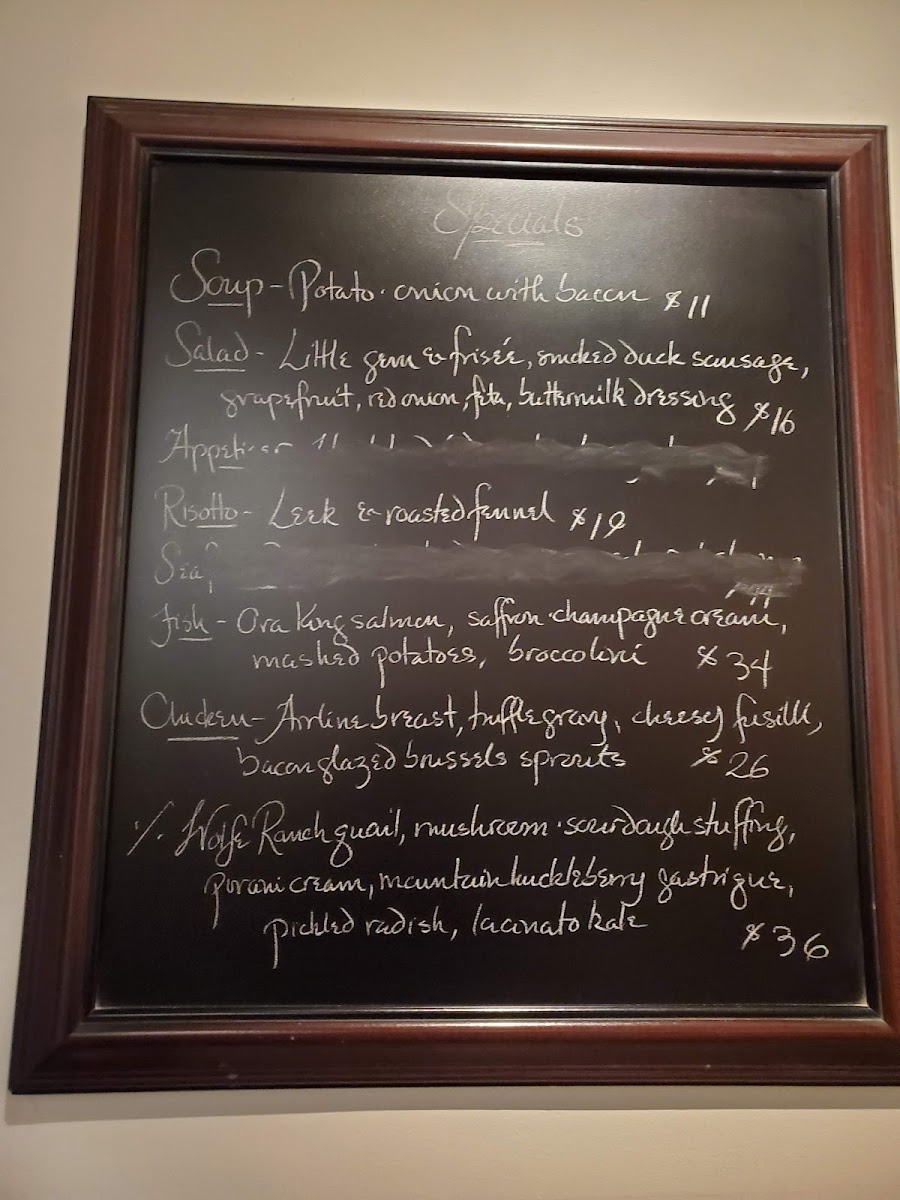 Specials
Soup - Potato · onion with bacon $11
Salad - Little gem & friseé, smoked duck sausage,
grapefruit, red onion, feta, buttermilk dressing $16
Appetizer
Risotto - Leek & roasted fennel $19
Sea
Fish - Ora King salmon, saffron · champagne cream,
mashed potatoes, broccolini $34
Chicken - Airline breast, truffle gravy, cheesy fusilli,
bacon glazed brussels sprouts $26
Wolfe Ranch quail, mushroom · sourdough stuffing,
porcini cream, mountain huckleberry gastrique,
pickled radish, lacinato kale
$36